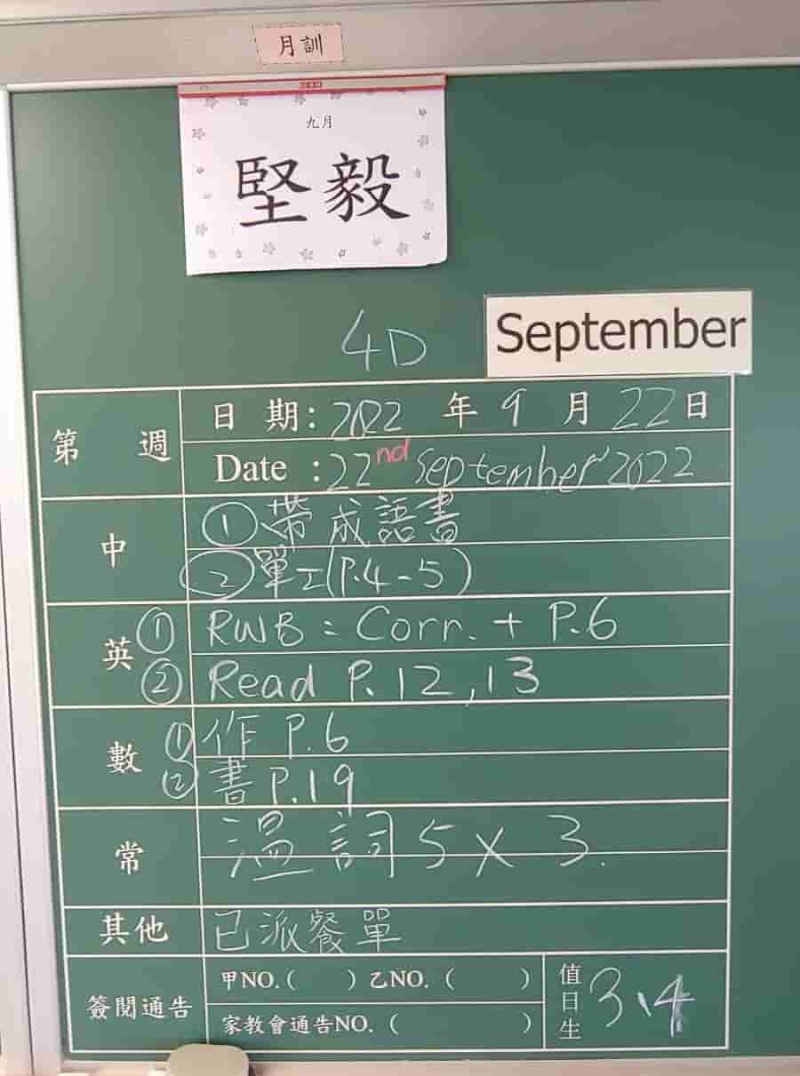 月訓
九月
堅毅
4D
September
第 週
日 期: 2022 年 9 月 22 日
Date : 22nd September' 2022
中
① 帶成語書
② 單工(P.4-5)
英
① RWB = Corr. + P.6
② Read P. 12, 13
數
① 作 P.6
② 書 P.19
常
溫 詞 5 x 3.
其他
已派餐單
簽閱通告
甲NO.( ) 乙NO. ( )
家教會通告NO. ( )
值日生
3、4